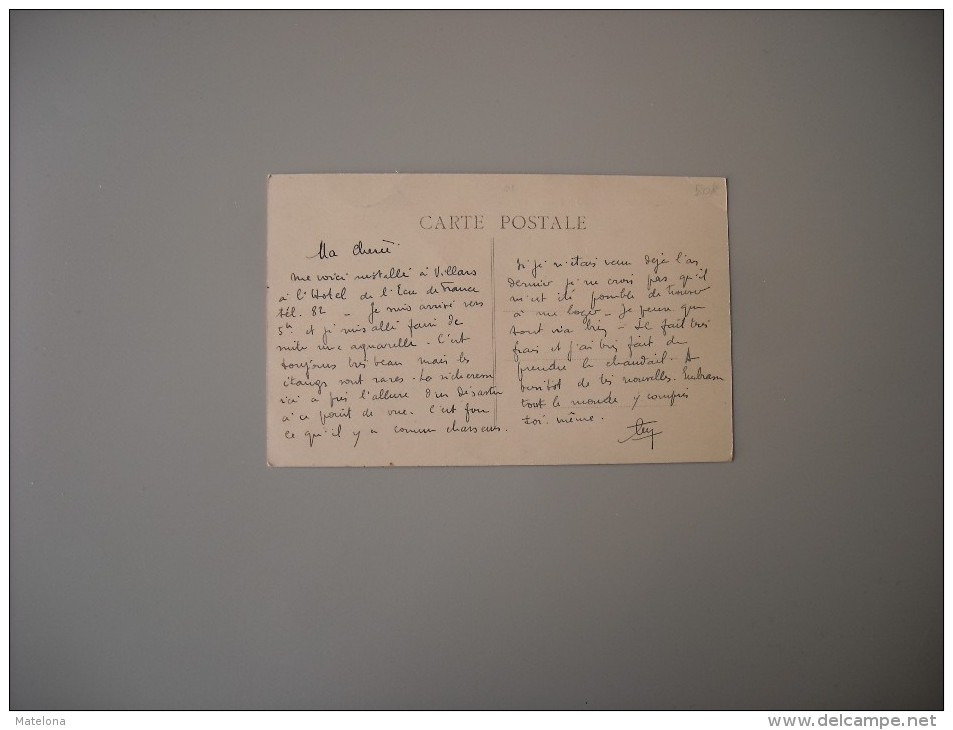 CARTE POSTALE
Ma Cherie
me voici installé à Villars
à l'Hotel de l'Ecu de France
tél. 82 - Je suis arrivé vers
5h et je suis allé faire de
suite une aquarelle. C'est
toujours très beau mais les
étangs sont rares. La sécheresse
ici a pris l'allure d'un désastre
à ce point de vue. C'est fou
ce qu'il y a comme chasseurs.
Si je n'étais venu déjà l'an
dernier je ne crois pas qu'il
m'eut été possible de trouver
à me loger - Je pense que
tout ira bien - Il fait très
frais et j'ai bien fait de
prendre le chandail. A
bientot de tes nouvelles. Embrasse
tout le monde y compris
toi-même.
Matelona
www.delcampe.net